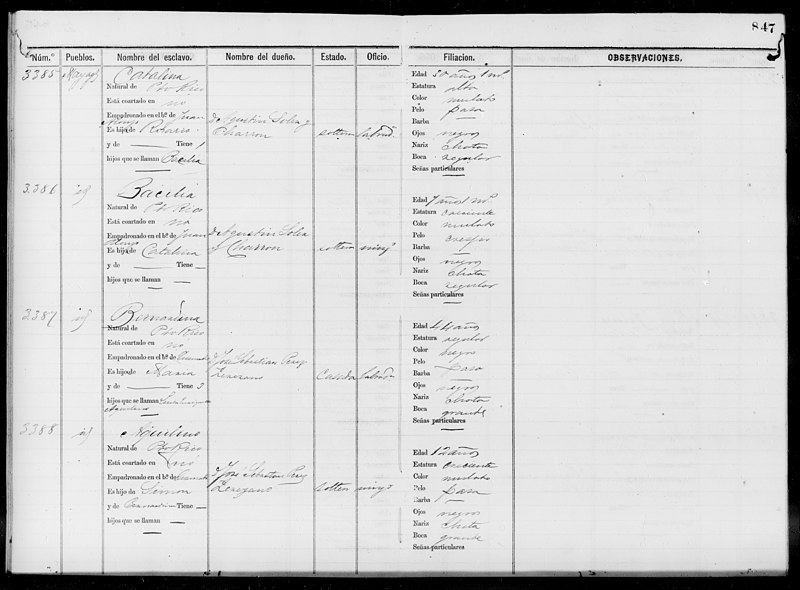 847
Núm.º Pueblos. Nombre del esclavo. Nombre del dueño. Estado. Oficio. Filiacion. OBSERVACIONES.
3385 Catalina
Natural de Pto Rico
Está coartado en no
Empadronado en el h.º de Juan
Es hijo de Rosario
y de — Tiene 1
hijos que se llaman Bacilia
D Agustin Solea y
Charron
soltera labrad
Edad 30 años 1 m.s
Estatura alta
Color mulato
Pelo pasa
Barba —
Ojos negros
Nariz chata
Boca regular
Señas particulares —
3386 id Bacilia
Natural de Pto Rico
Está coartado en no
Empadronado en el h.º de Juan
Es hijo de Catalina
y de — Tiene —
hijos que se llaman —
D Agustin Solea
y Charron
soltera ning.º
Edad 7 años 1 m.s
Estatura creciente
Color mulato
Pelo crespo
Barba —
Ojos negros
Nariz chata
Boca regular
Señas particulares —
3387 id Bernardina
Natural de Pto Rico
Está coartado en no
Empadronado en el h.º de
Es hijo de Maria
y de — Tiene 3
hijos que se llaman
D Jose Sebastian Perez
casada labrad
Edad 44 años
Estatura regular
Color negro
Pelo pasa
Barba —
Ojos negros
Nariz chata
Boca grande
Señas particulares —
3388 id Aquilino
Natural de Pto Rico
Está coartado en no
Empadronado en el h.º de
Es hijo de Simon
y de Bernardina Tiene —
hijos que se llaman —
D Jose Sebastian Perez
soltero ning.º
Edad 12 años
Estatura creciente
Color mulato
Pelo pasa
Barba —
Ojos negros
Nariz chata
Boca grande
Señas particulares